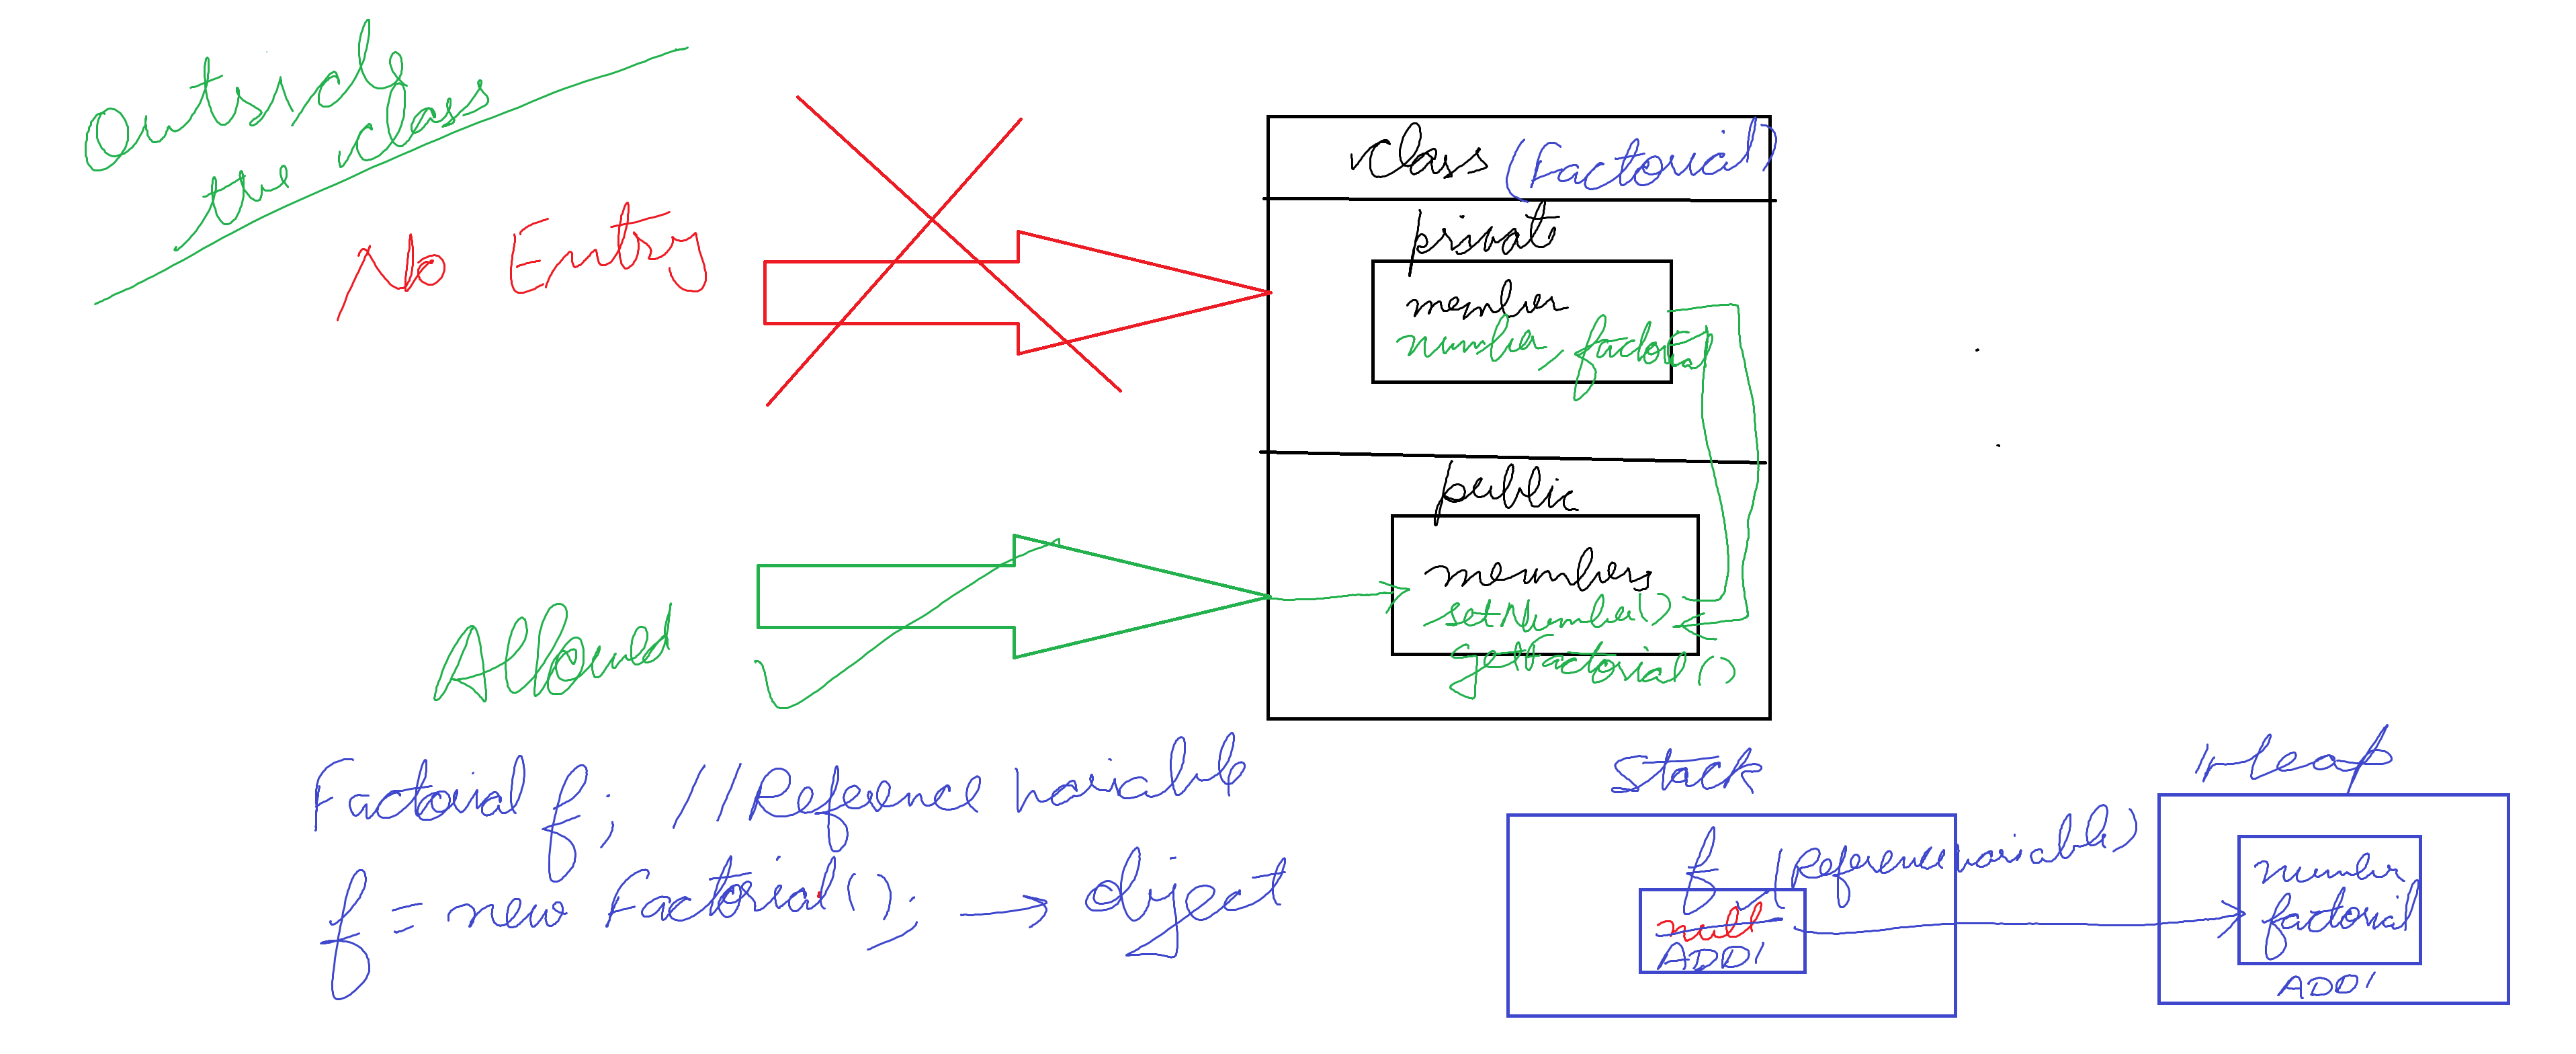 Outside
the class
No Entry
class (Factorial)
private
member
number, factorial
public
members
setNumber()
getFactorial()
Allowed
Factorial f; //Reference variable
f = new Factorial(); → object
Stack
f (Reference variable)
null
ADD1
Heap
number
factorial
ADD1